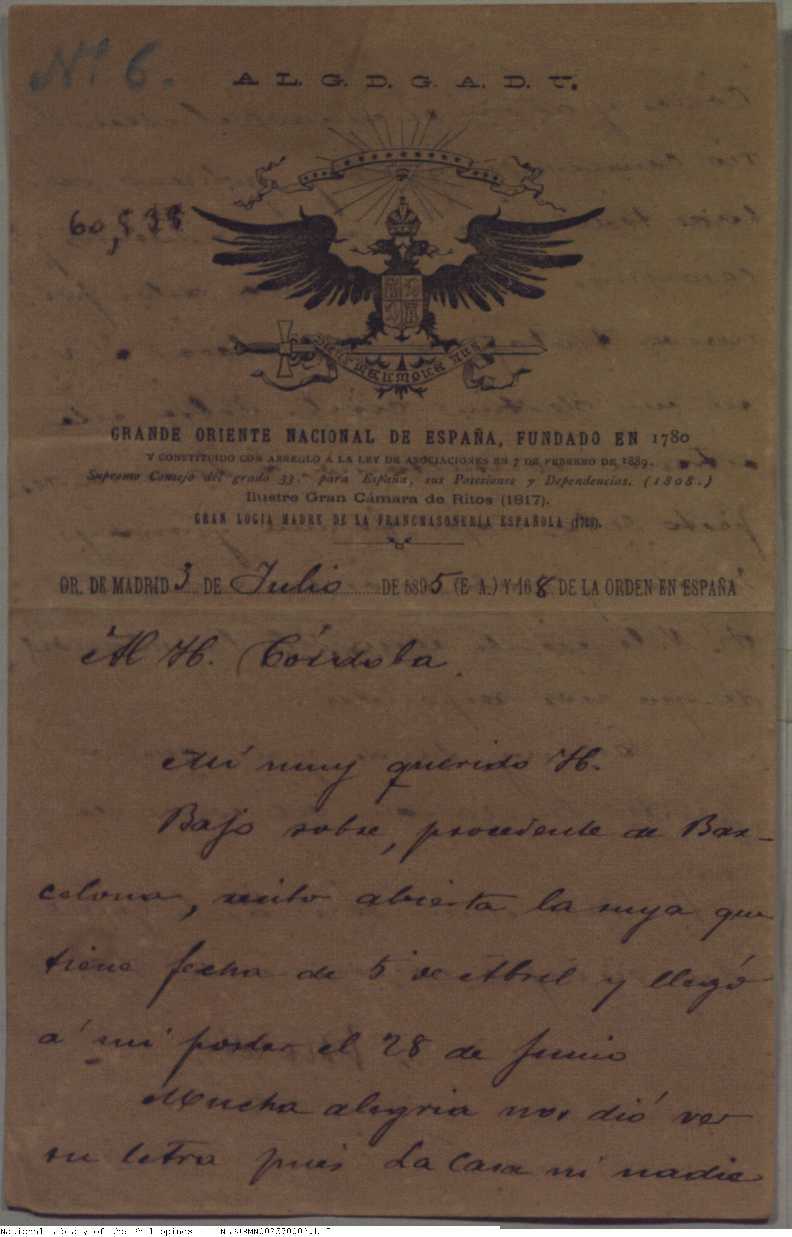 Nº 6.
A L. G. D. G. A. D. U.
60,538
DEUS MEUMQUE JUS
GRANDE ORIENTE NACIONAL DE ESPAÑA, FUNDADO EN 1780
Y CONSTITUIDO CON ARREGLO Á LA LEY DE ASOCIACIONES EN 7 DE FEBRERO DE 1889.
Supremo Consejo del grado 33.º para España, sus Posesiones y Dependencias. (1808.)
Ilustre Gran Cámara de Ritos (1817).
GRAN LOGIA MADRE DE LA FRANCMASONERÍA ESPAÑOLA
OR. DE MADRID 3 DE Julio DE 1895 (E. A.) Y 168 DE LA ORDEN EN ESPAÑA
Al H. Córdoba
Mi muy querido H.
Bajo sobre, procedente de Bar-
celona, recibo abierta la suya que
tiene fecha de 5 de Abril y llegó
á mi poder el 28 de Junio
Mucha alegria nos dió ver
su letra pues La Casa ni nadie
National Library of the Philippines